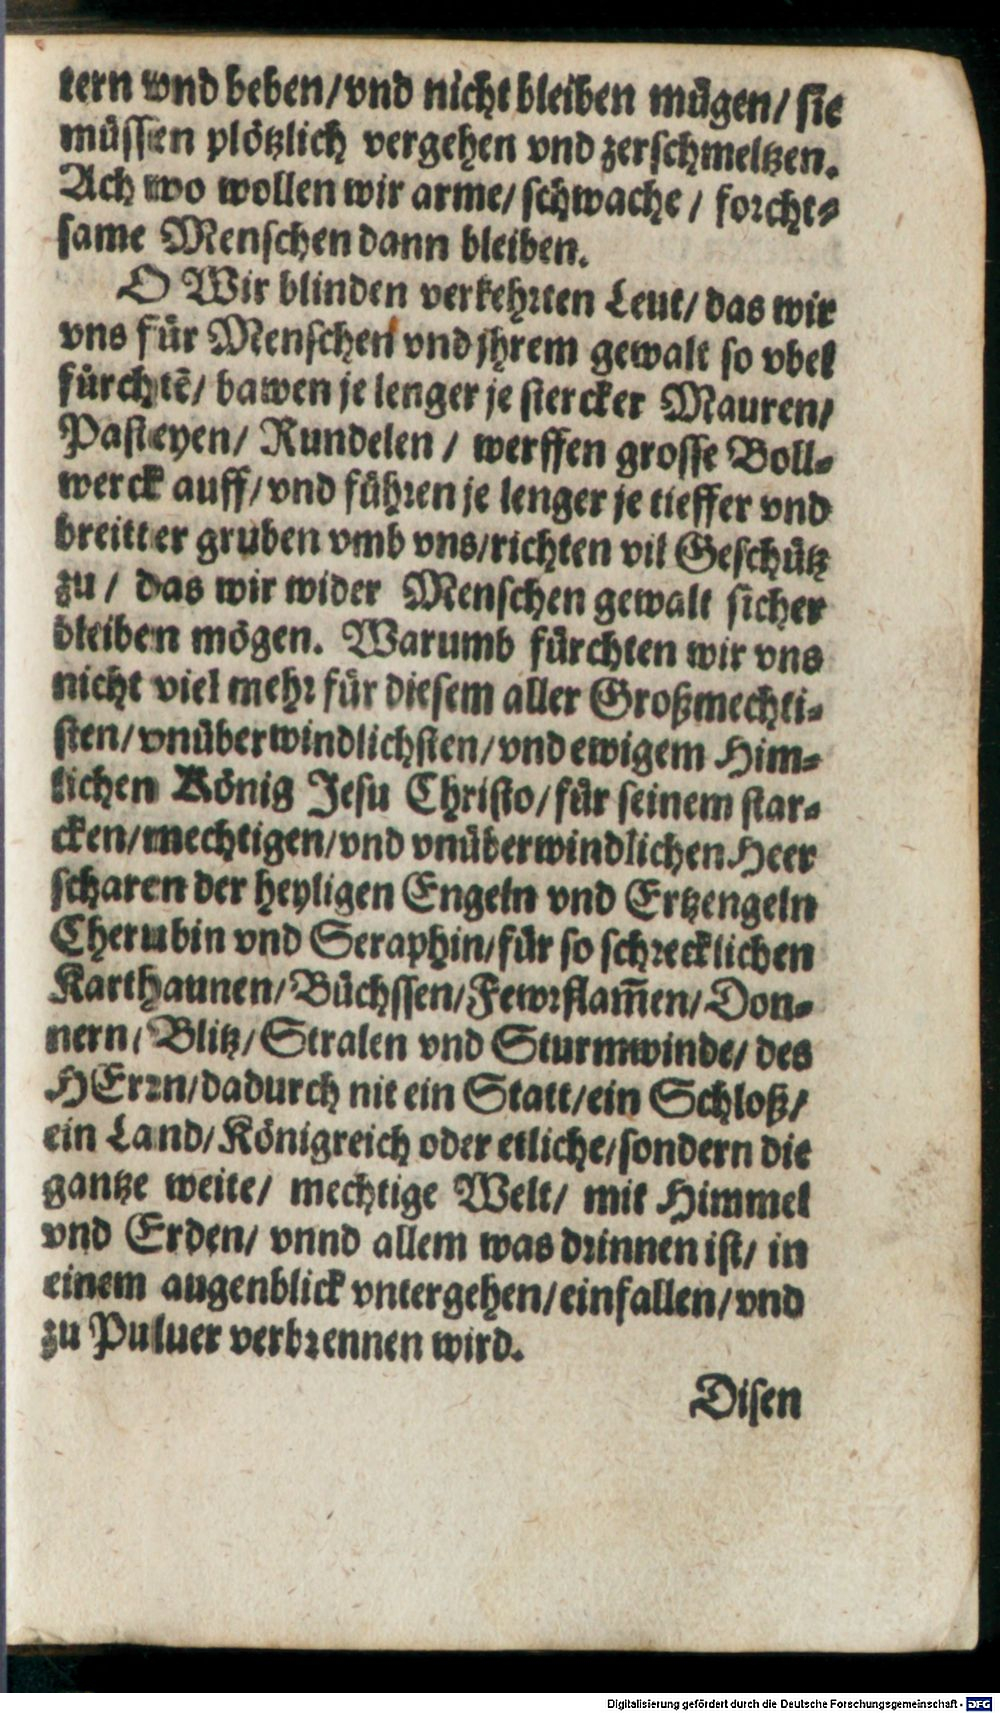 tern vnd beben/vnd nicht bleiben mügen/ sie
müssen plötzlich vergehen vnd zerschmeltzen.
Ach wo wollen wir arme/ schwache / forcht-
same Menschen dann bleiben.
O Wir blinden verkehrten Leut/ das wir
vns für Menschen vnd jhrem gewalt so vbel
fürchtē/ bawen je lenger je stercker Mauren/
Pasteyen/ Rundelen / werffen grosse Boll-
werck auff/ vnd führen je lenger je tieffer vnd
breitter gruben vmb vns/richten vil Geschütz
zu / das wir wider Menschen gewalt sicher
bleiben mögen. Warumb fürchten wir vns
nicht viel mehr für diesem aller Großmechti-
sten/ vnüberwindlichsten/ vnd ewigem Him-
lichen König Jesu Christo/ für seinem star-
cken/mechtigen/vnd vnüberwindlichen Heer
scharen der heyligen Engeln vnd Ertzengeln
Cherubin vnd Seraphin/für so schrecklichen
Karthaunen/Büchssen/Fewrflam̄en/Don-
nern/ Blitz/ Stralen vnd Sturmwinde/ des
HErrn/dadurch nit ein Statt/ein Schloß/
ein Land/ Königreich oder etliche/sondern die
gantze weite/ mechtige Welt/ mit Himmel
vnd Erden/ vnnd allem was drinnen ist/ in
einem augenblick vntergehen/einfallen/vnd
zu Puluer verbrennen wird.
Disen
Digitalisierung gefördert durch die Deutsche Forschungsgemeinschaft - DFG